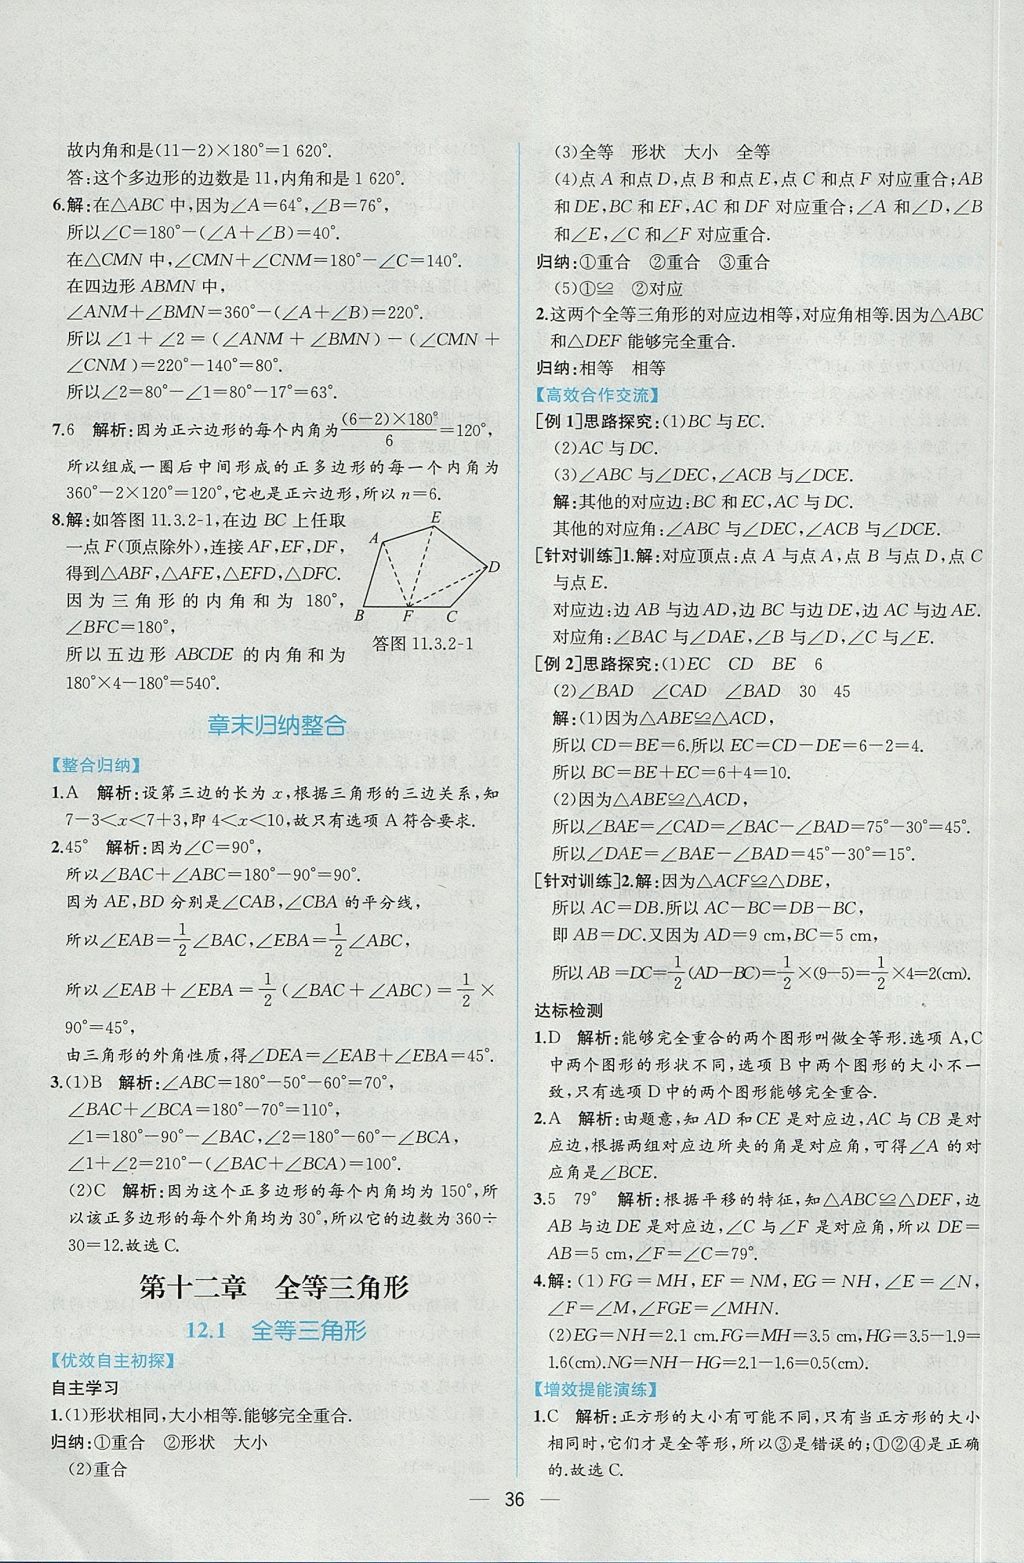 故内角和是(11-2)×180°=1 620°.
答:这个多边形的边数是11,内角和是1 620°.
6.解:在△ABC中,因为∠A=64°,∠B=76°,
所以∠C=180°-(∠A+∠B)=40°.
在△CMN中,∠CMN+∠CNM=180°-∠C=140°.
在四边形ABMN中,
∠ANM+∠BMN=360°-(∠A+∠B)=220°.
所以∠1+∠2=(∠ANM+∠BMN)-(∠CMN+
∠CNM)=220°-140°=80°.
所以∠2=80°-∠1=80°-17°=63°.
7.6 解析:因为正六边形的每个内角为(6-2)×180°/6=120°,
所以组成一圈后中间形成的正多边形的每一个内角为
360°-2×120°=120°,它也是正六边形,所以n=6.
8.解:如答图11.3.2-1,在边BC上任取
一点F(顶点除外),连接AF,EF,DF,
得到△ABF,△AFE,△EFD,△DFC.
因为三角形的内角和为180°,
∠BFC=180°,
所以五边形ABCDE的内角和为
180°×4-180°=540°.
A E D B F C
答图11.3.2-1
章末归纳整合
【整合归纳】
1.A 解析:设第三边的长为x,根据三角形的三边关系,知
7-3<x<7+3,即4<x<10,故只有选项A符合要求.
2.45° 解析:因为∠C=90°,
所以∠BAC+∠ABC=180°-90°=90°.
因为AE,BD分别是∠CAB,∠CBA的平分线,
所以∠EAB=1/2∠BAC,∠EBA=1/2∠ABC,
所以∠EAB+∠EBA=1/2(∠BAC+∠ABC)=1/2×
90°=45°,
由三角形的外角性质,得∠DEA=∠EAB+∠EBA=45°.
3.(1)B 解析:∠ABC=180°-50°-60°=70°,
∠BAC+∠BCA=180°-70°=110°,
∠1=180°-90°-∠BAC,∠2=180°-60°-∠BCA,
∠1+∠2=210°-(∠BAC+∠BCA)=100°.
(2)C 解析:因为这个正多边形的每个内角均为150°,所
以该正多边形的每个外角均为30°,所以它的边数为360÷
30=12.故选C.
第十二章 全等三角形
12.1 全等三角形
【优效自主初探】
自主学习
1.(1)形状相同,大小相等.能够完全重合.
归纳:①重合 ②形状 大小
(2)重合
(3)全等 形状 大小 全等
(4)点A和点D,点B和点E,点C和点F对应重合;AB
和DE,BC和EF,AC和DF对应重合;∠A和∠D,∠B
和∠E,∠C和∠F对应重合.
归纳:①重合 ②重合 ③重合
(5)①≌ ②对应
2.这两个全等三角形的对应边相等,对应角相等.因为△ABC
和△DEF能够完全重合.
归纳:相等 相等
【高效合作交流】
[例1]思路探究:(1)BC与EC.
(2)AC与DC.
(3)∠ABC与∠DEC,∠ACB与∠DCE.
解:其他的对应边:BC和EC,AC与DC.
其他的对应角:∠ABC与∠DEC,∠ACB与∠DCE.
[针对训练]1.解:对应顶点:点A与点A,点B与点D,点C
与点E.
对应边:边AB与边AD,边BC与边DE,边AC与边AE.
对应角:∠BAC与∠DAE,∠B与∠D,∠C与∠E.
[例2]思路探究:(1)EC CD BE 6
(2)∠BAD ∠CAD ∠BAD 30 45
解:(1)因为△ABE≌△ACD,
所以CD=BE=6.所以EC=CD-DE=6-2=4.
所以BC=BE+EC=6+4=10.
(2)因为△ABE≌△ACD,
所以∠BAE=∠CAD=∠BAC-∠BAD=75°-30°=45°.
所以∠DAE=∠BAE-∠BAD=45°-30°=15°.
[针对训练]2.解:因为△ACF≌△DBE,
所以AC=DB.所以AC-BC=DB-BC,
即AB=DC.又因为AD=9 cm,BC=5 cm,
所以AB=DC=1/2(AD-BC)=1/2×(9-5)=1/2×4=2(cm).
达标检测
1.D 解析:能够完全重合的两个图形叫做全等形.选项A,C
中两个图形的形状不同,选项B中两个图形的大小不一
致,只有选项D中的两个图形能够完全重合.
2.A 解析:由题意,知AD和CE是对应边,AC与CB是对
应边,根据两组对应边所夹的角是对应角,可得∠A的对
应角是∠BCE.
3.5 79° 解析:根据平移的特征,知△ABC≌△DEF,边
AB与边DE是对应边,∠C与∠F是对应角,所以DE=
AB=5 cm,∠F=∠C=79°.
4.解:(1)FG=MH,EF=NM,EG=NH,∠E=∠N,
∠F=∠M,∠FGE=∠MHN.
(2)EG=NH=2.1 cm.FG=MH=3.5 cm,HG=3.5-1.9=
1.6(cm).NG=NH-HG=2.1-1.6=0.5(cm).
【增效提能演练】
1.C 解析:正方形的大小有可能不同,只有当正方形的大小
相同时,它们才是全等形,所以③是错误的;①②④是正确
的.故选C.
— 36 —